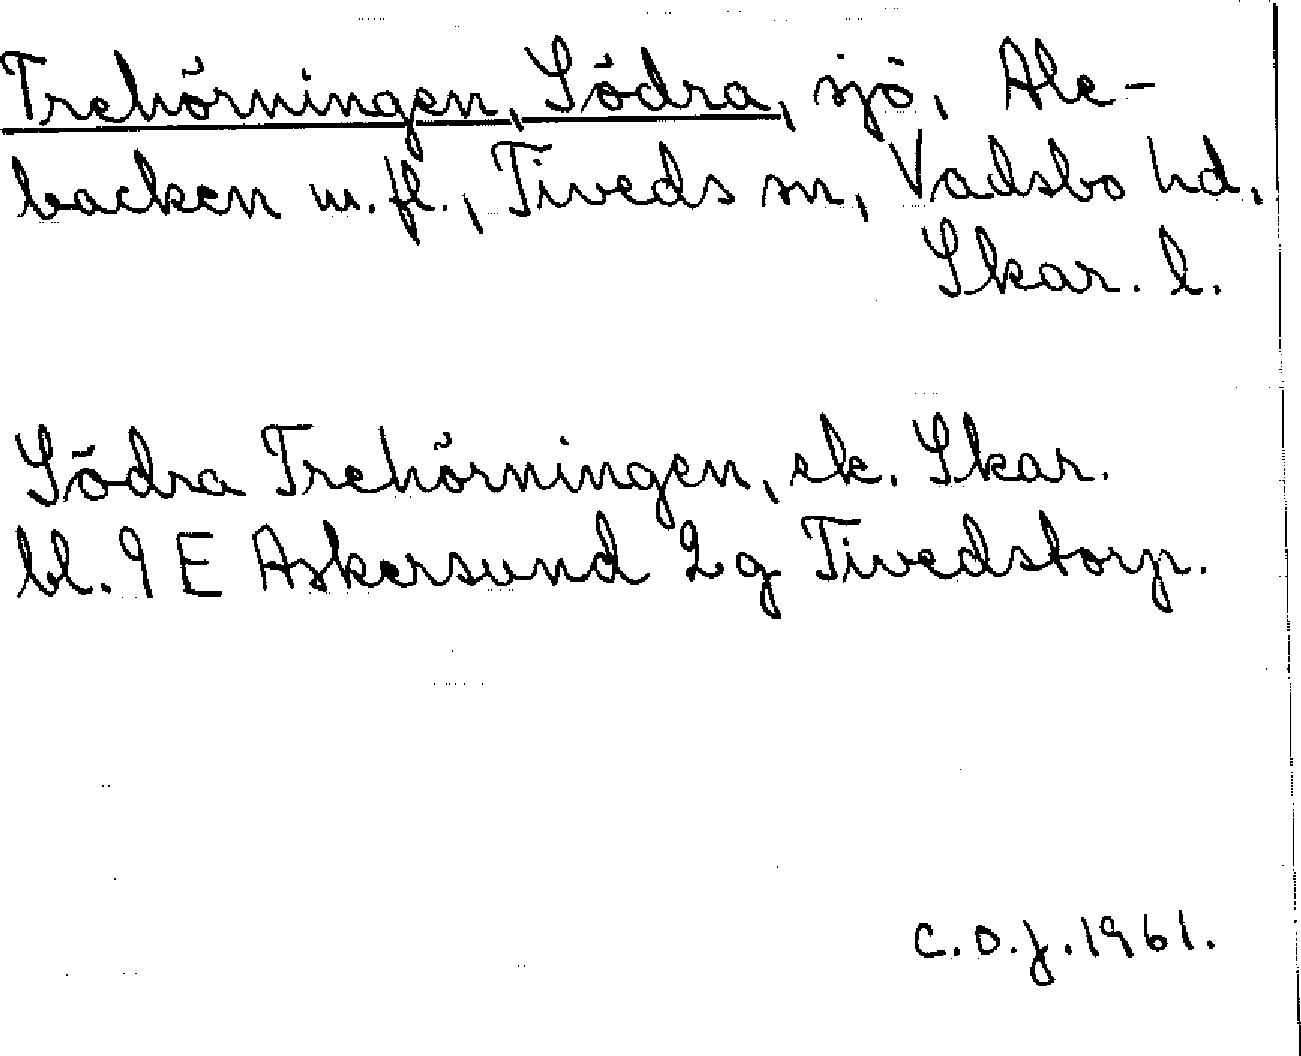 Trehörningen, Södra, sjö, Ale-
backen m. fl., Tiveds sn, Vadsbo hd,
Skar. l.
Södra Trehörningen, ek. Skar.
bl. 9 E Askersund 2g Tivedstorp.
C.O.J. 1961.